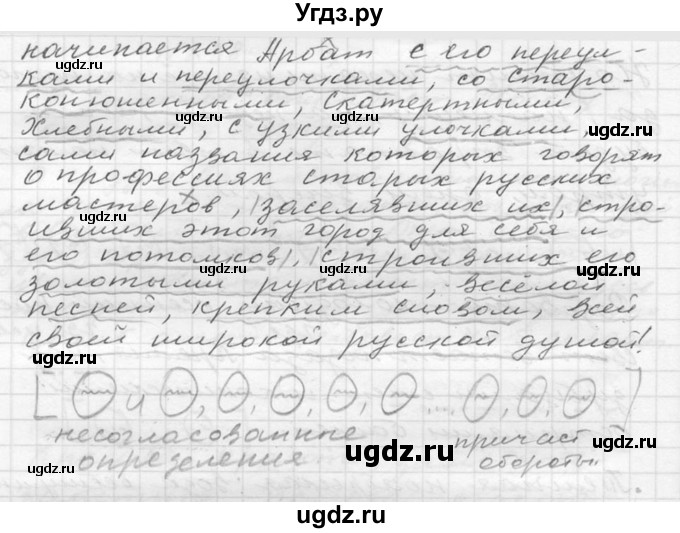 Угдз.ру
начинается Арбат с его переул-
ками и переулочками, со Старо-
конюшенными, Скатертными,
Хлебными, с узкими улочками,
сами названия которых говорят
о профессиях старых русских
мастеров, |заселявших их|, стро-
ивших этот город для себя и
его потомков|, |строивших его
золотыми руками, весёлой
песней, крепким словом, всей
своей широкой русской душой!
[ и , , , , ... , , ]
несогласованные определения
причаст обороты
ugdz.ru
ugdz.ru
ugdz.ru
ugdz.ru
ugdz.ru
ugdz.ru
ugdz.ru
ugdz.ru
ugdz.ru
ugdz.ru
ugdz.ru
ugdz.ru
ugdz.ru
ugdz.ru